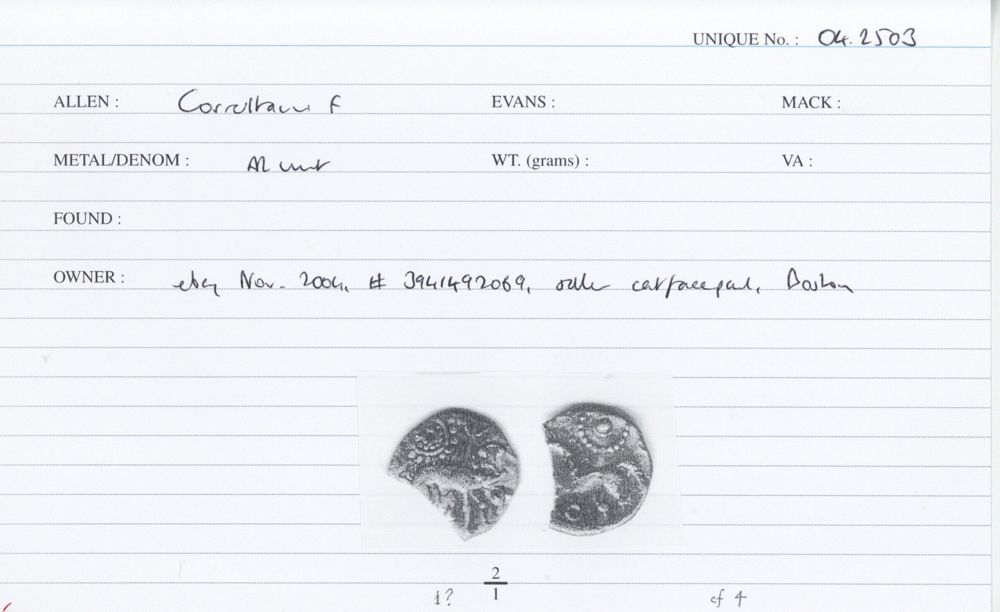 UNIQUE No. : 04.2503
ALLEN : Corieltauvi F EVANS : MACK :
METAL/DENOM : AR unit WT. (grams) : VA :
FOUND :
OWNER : ebay Nov. 2004, # 3941492069, seller catfacepaul, Boston
2
1? 1 cf 4